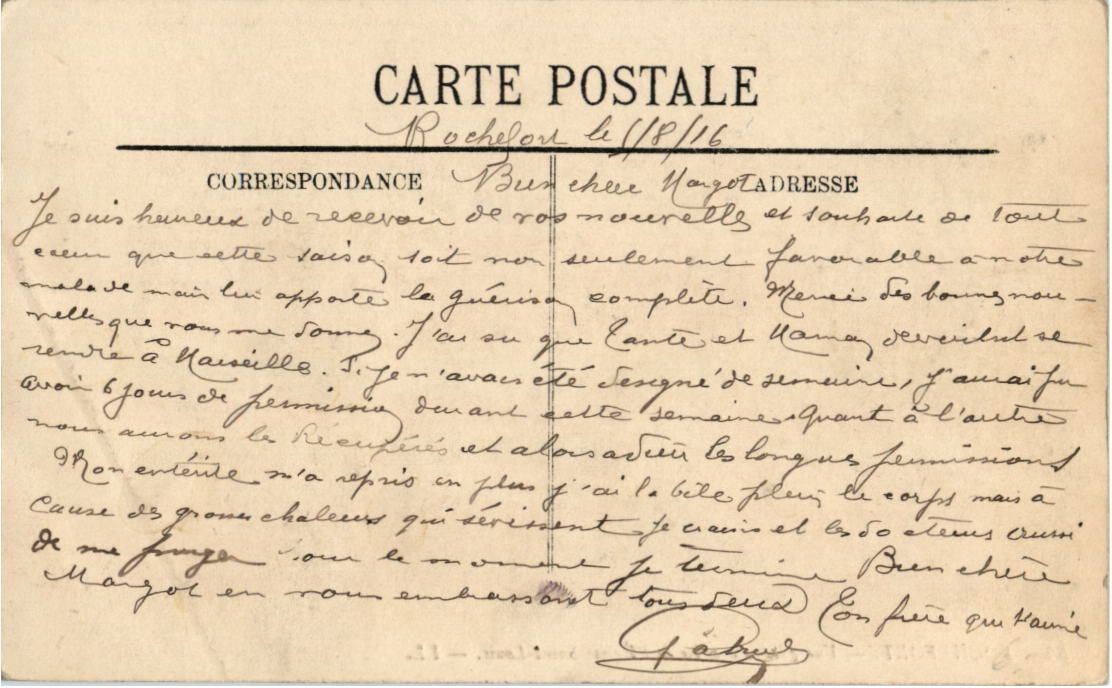 CARTE POSTALE
Rochefort le 1/8/16
CORRESPONDANCE
Bien chère Margot
ADRESSE
Je suis heureux de recevoir de vos nouvelles et souhaite de tout
coeur que cette saison soit non seulement favorable a notre
malade mais lui apporte la guérison complète. Merci des bonnes nou-
velles que vous me donnez. J'ai su que Tante et Maman devaient se
rendre à Marseille. Si je n'avais été designé de semaine, j'aurai pu
avoir 6 jours de permission durant cette semaine. Quant à l'autre
nous aurons les Récupérés et alors adieu les longues permissions
Mon entérite m'a repris en plus j'ai la bile plein le corps mais à
cause des grosses chaleurs qui sévissent je crains et les docteurs aussi
de me purger. Pour le moment je termine Bien chère
Margot en vous embrassant tous deux Ton frère qui t'aime